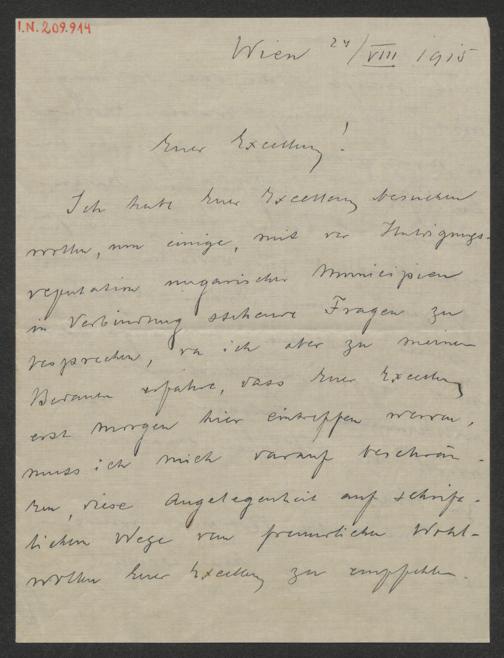 I.N. 209.914
Wien 24/VIII 1915
Euer Excellenz!
Ich habe Euer Excellenz besuchen
wollen, um einige, mit der Huldigungs-
deputation ungarischer Municipien
in Verbindung stehende Fragen zu
besprechen, da ich aber zu meinem
Bedauern erfahre, dass Euer Excellenz
erst morgen hier eintreffen werden,
muss ich mich darauf beschrän-
ken, diese Angelegenheit auf schrift-
lichem Wege dem freundlichen Wohl-
wollen Euer Excellenz zu empfehlen.